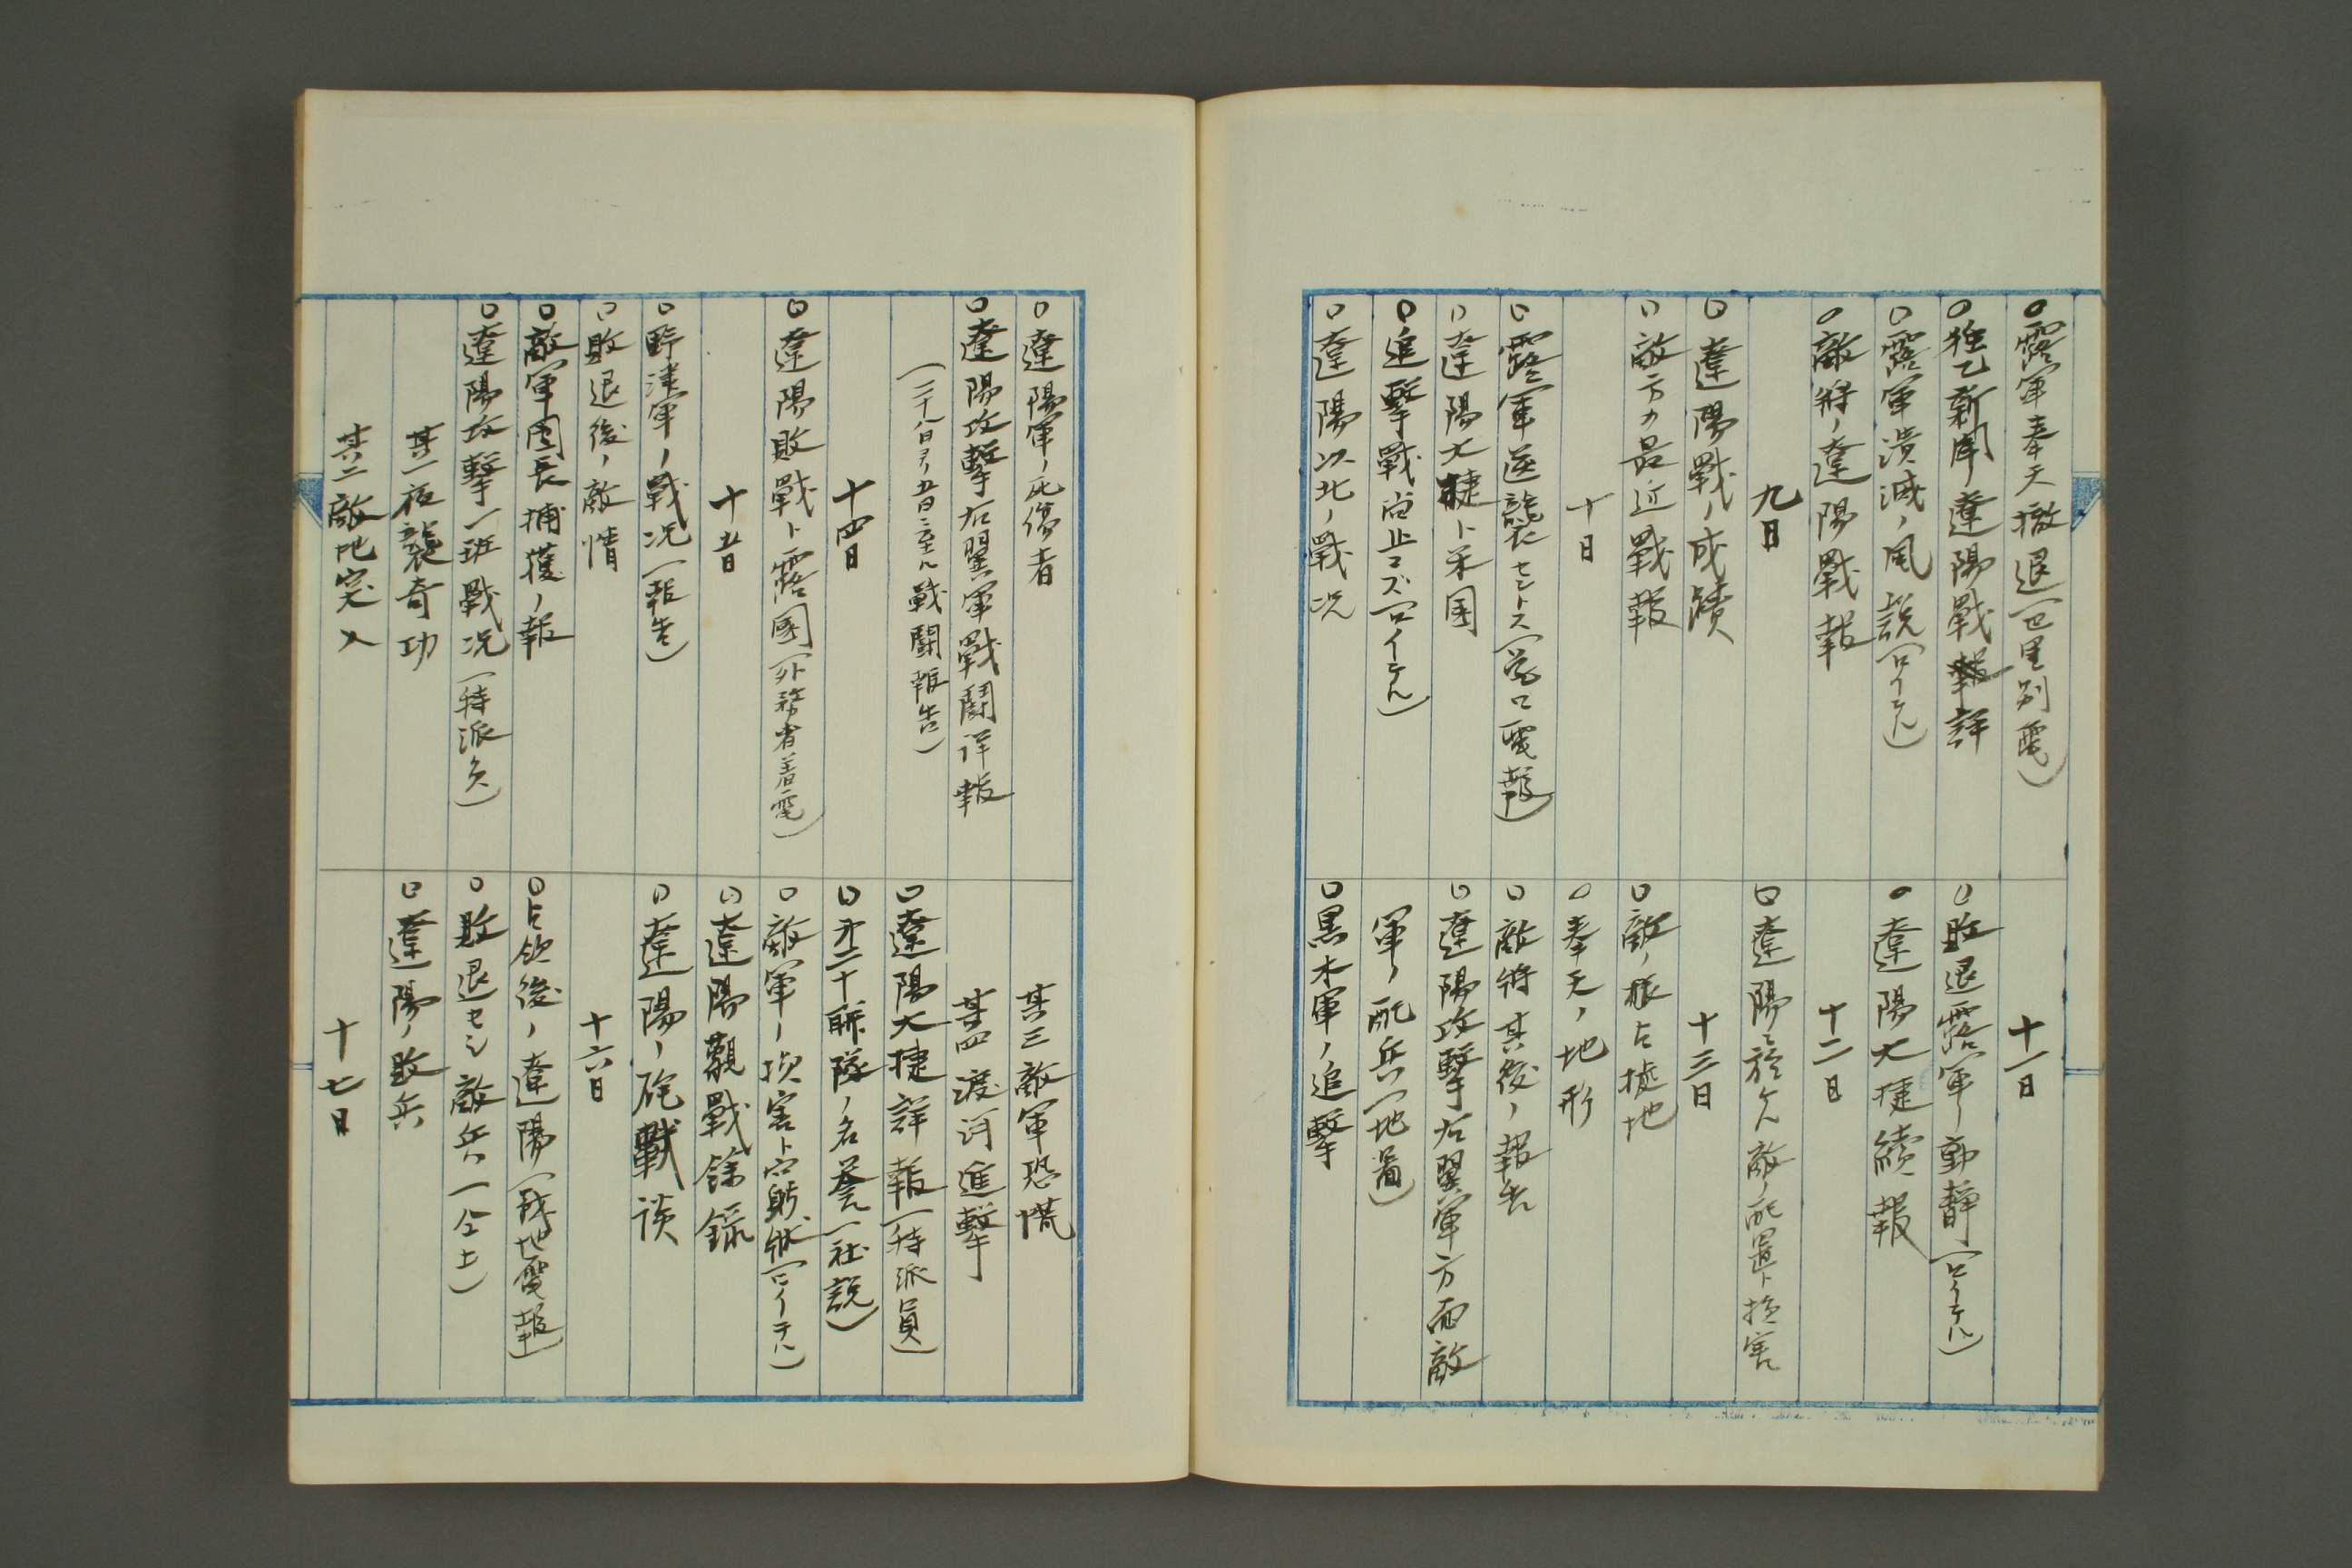 ○露軍奉天撤退(巴里別電)
○独乙新聞遼陽戰報詳
○露軍潰滅ノ風説(ロイテル)
○敵將ノ遼陽戰報
九日
○遼陽戰ノ成蹟
○敵方ノ最近戰報
十日
○露軍逆襲セントス(営口電報)
○遼陽大捷ト米国
○追擊戰尚止マズ(ロイテル)
○遼陽以北ノ戰况
十一日
○敗退露軍ノ動静(ロイテル)
○遼陽大捷續報
十二日
○遼陽ニ於ケル敵ノ配置ト損害
十三日
○敵ノ根占拠地
○奉天ノ地形
○敵將其後ノ報告
○遼陽攻擊右翼軍方面敵
軍ノ配兵(地畧)
○黒木軍ノ追擊
○遼陽軍ノ死傷者
○遼陽攻擊右翼軍戰鬪詳報
(二十八日ヨリ五日ニ至ル戰鬪報告)
十四日
○遼陽敗戰ト露國(外務省着電)
十五日
○野津軍ノ戰况(報告)
○敗退後ノ敵情
○敵軍団長捕獲ノ報
○遼陽攻擊一班戰况(特派員)
其一夜襲奇功
其二敵地突入
其三敵軍恐慌
其四渡河進擊
○遼陽大捷詳報(特派員)
○第二十聯隊ノ名誉(社説)
○敵軍ノ損害ト(ロイテル)
○遼陽觀戰餘録
○遼陽ノ砲戰談
十六日
○占領後ノ遼陽(戰地電報)
○敗退セシ敵兵(仝上)
○遼陽ノ敗兵
十七日